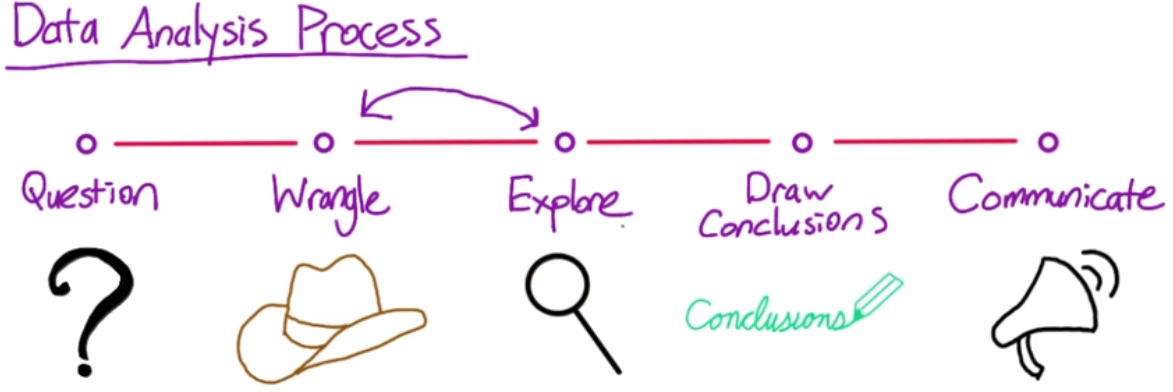 Data Analysis Process
Question
Wrangle
Explore
Draw
Conclusions
Communicate
?
Conclusions